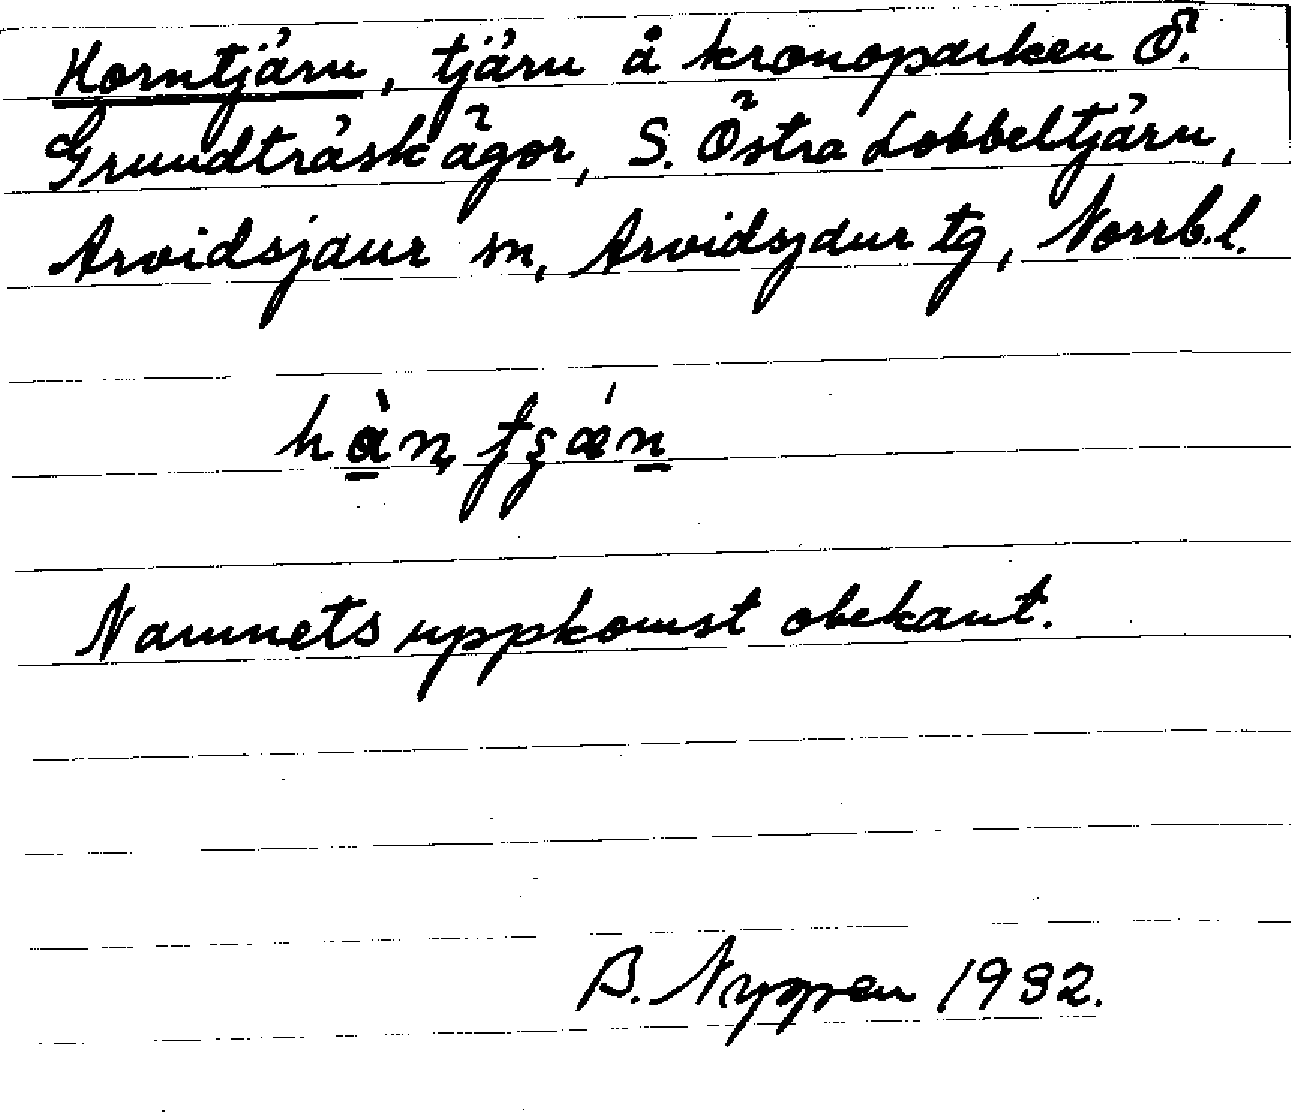 Horntjärn, tjärn å kronoparken Ö.
Grundträsk ägor, S. Östra Lobbeltjärn,
Arvidsjaur sn, Arvidsjaur tg, Norrb.l.
Namnets uppkomst obekant.
B. Nyppen 1932.